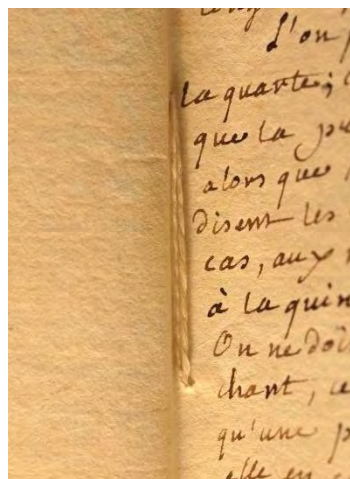 L'on
la quarte;
que la
alors que
disent les
cas, aux
à la quin
On ne doi
chant, ce
qu'une
elle en